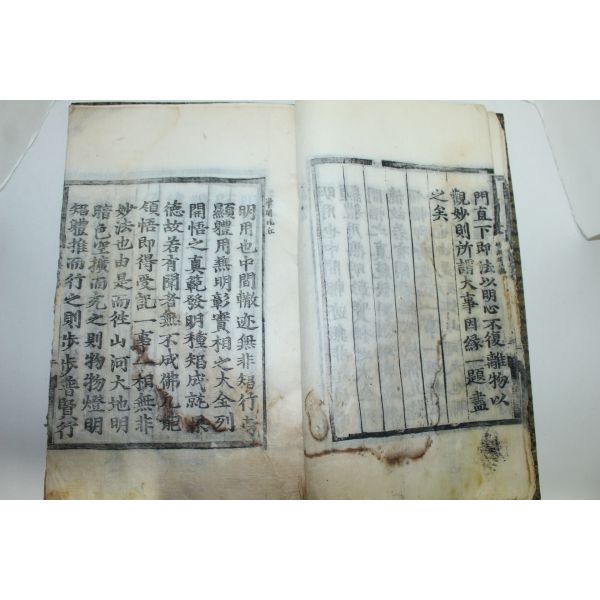 門直下即法以明心不復離物以
觀妙則所謂大事因緣一題盡
之矣
明用也中間轍迹無非智行旁
顯體用兼明彰實相之大全列
開悟之真範發明種智成就果
德故若有聞者無不成佛凡能
領悟即得受記一事一相無非
妙法也由是而徃山河大地明
暗色空擴而充之則物物燈明
智體推而行之則步步普賢行